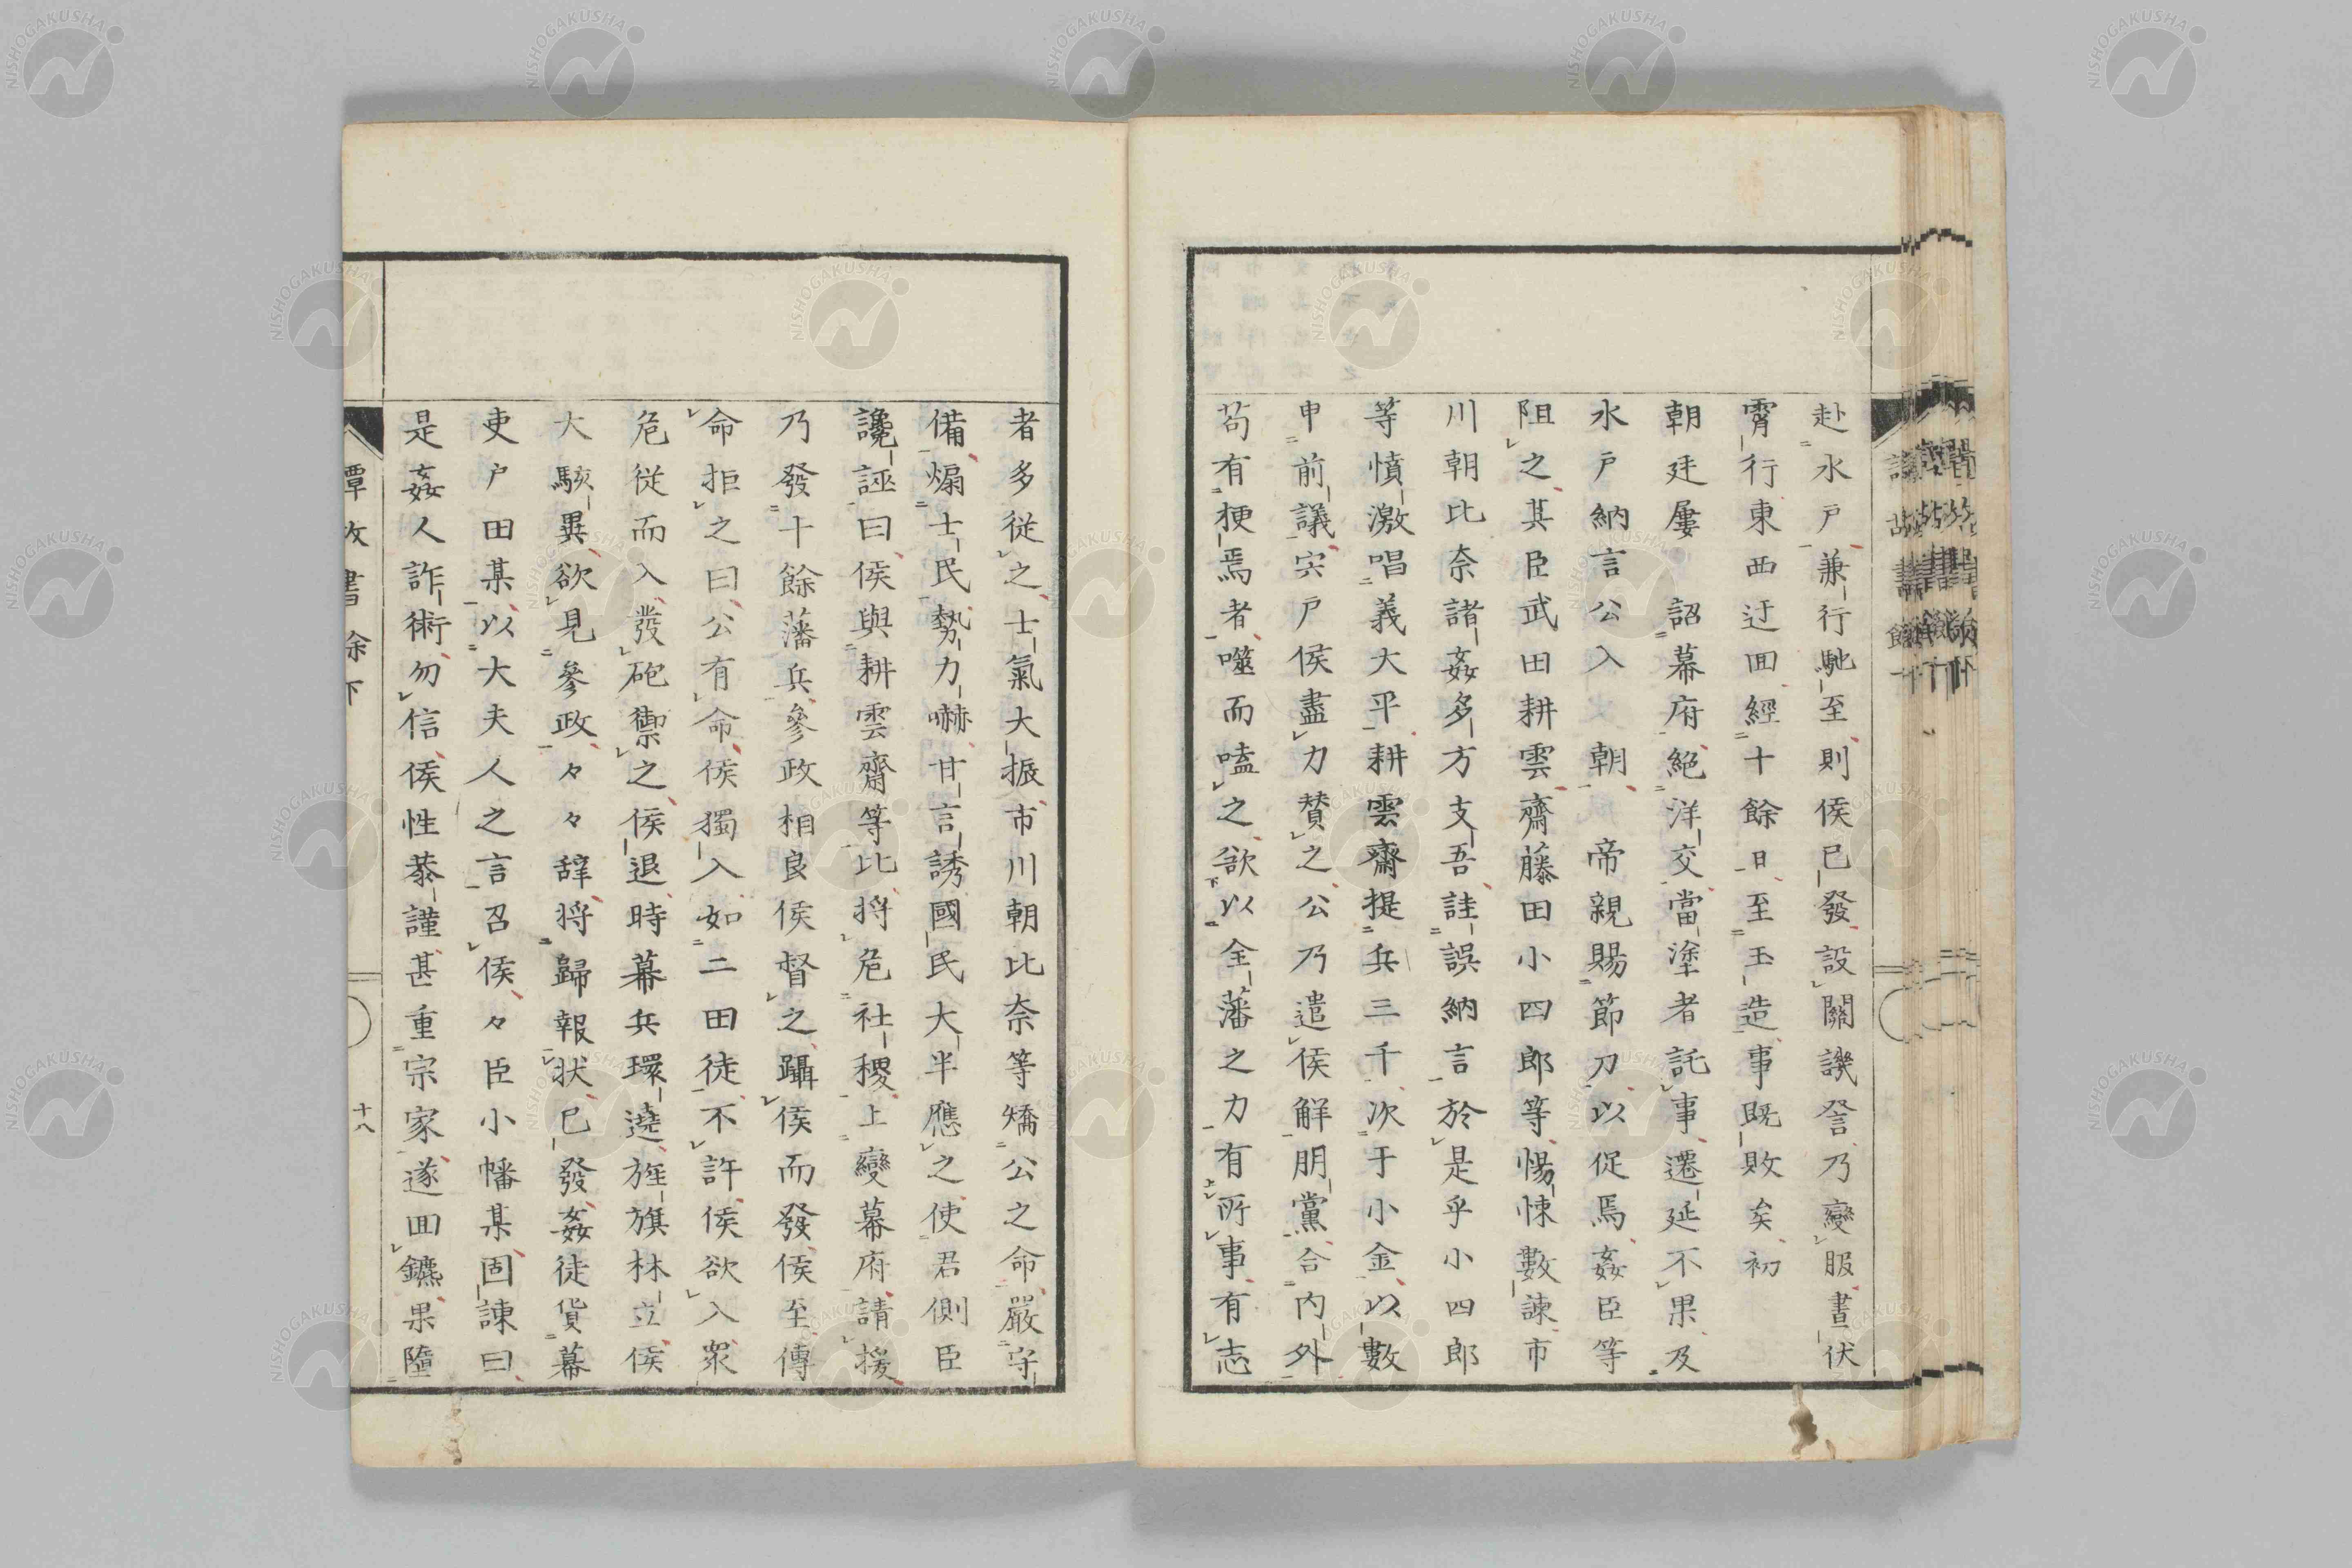 赴水戸兼行馳至則侯已發設關譏詧乃變服晝伏
霄行東西迂囬經十餘日至玉造事既敗矣初
朝廷屢 詔幕府絕洋交當塗者託事遷延不果及
水戸納言公入 朝 帝親賜節刀以促焉姦臣等
阻之其臣武田耕雲齋藤田小四郎等惕悚數諫市
川朝比奈諸姦多方支吾詿誤納言於是乎小四郎
等憤激唱義大平耕雲齋提兵三千次于小金以數
申前議宍戸侯盡力賛之公乃遣侯解朋黨合内外
苟有梗焉者噬而嗑之欲以全藩之力有所事有志
者多從之士氣大振市川朝比奈等矯公之命嚴守
備煽士民勢力嚇甘言誘國民大半應之使君側臣
讒誣曰侯與耕雲齋等比将危社稷上變幕府請援
乃發十餘藩兵參政相良侯督之躡侯而發侯至傳
命拒之曰公有命侯獨入如二田徒不許侯欲入衆
危從而入發砲禦之侯退時幕兵環遶旌旗林立侯
大駭異欲見參政々々辞将歸報状已發姦徒貨幕
吏戸田某以大夫人之言召侯々臣小幡某固諫曰
是姦人詐術勿信侯性恭謹甚重宗家遂囬鑣果墮
十八
NISHOGAKUSHA